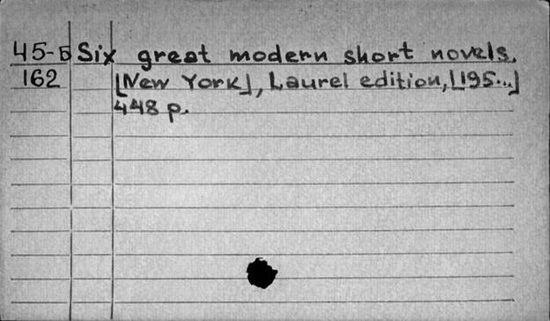 45-Б Six great modern short novels.
162 [New York], Laurel edition, [195...]
448 p.